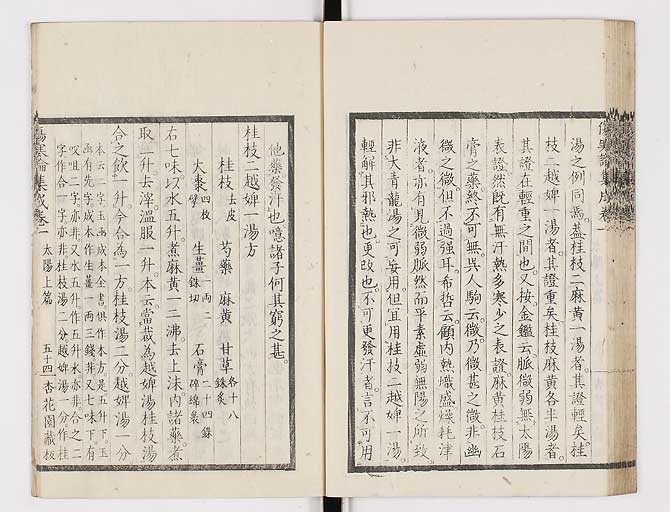 湯之例同焉蓋桂枝二麻黄一湯者其證輕矣桂
枝二越婢一湯者其證重矣桂枝麻黄各半湯者
其證在輕重之間也又按金鑑云脈微弱無太陽
表證然既有無汗熱多寒少之表證麻黄桂枝石
膏之藥終不可無呉人駒云微乃微甚之微非幽
微之微但不過強耳希哲云顧内熱熾盛燥耗津
液者亦有見微弱脈然而乎素虚弱無陽之所致
非大青龍湯之可妄用但宜用桂枝二越婢一湯
輕解其邪熱也更改也不可更發汗者言不可用
他藥發汗也噫諸子何其窮之甚
桂枝二越婢一湯方
桂枝去皮 芍藥 麻黄 甘草各十八銖炙
大棗四枚擘 生薑一兩二銖切 石膏二十四銖碎綿裹
右七味以水五升煮麻黄一二沸去上沫内諸藥煮
取二升去滓溫服一升本云當裁為越婢湯桂枝湯
合之飲一升今合為一方桂枝湯二分越婢湯一分
本云二字玉函成本全書倶作本方是五十下玉
函有先字成本作生薑一兩三錢非又七味下有
㕮咀二字亦非又水五升作五升水亦非合之二
字作合一字亦非桂枝湯二分越婢湯一分作桂
傷寒論集成卷二 太陽上篇 五十四 杏花園藏板